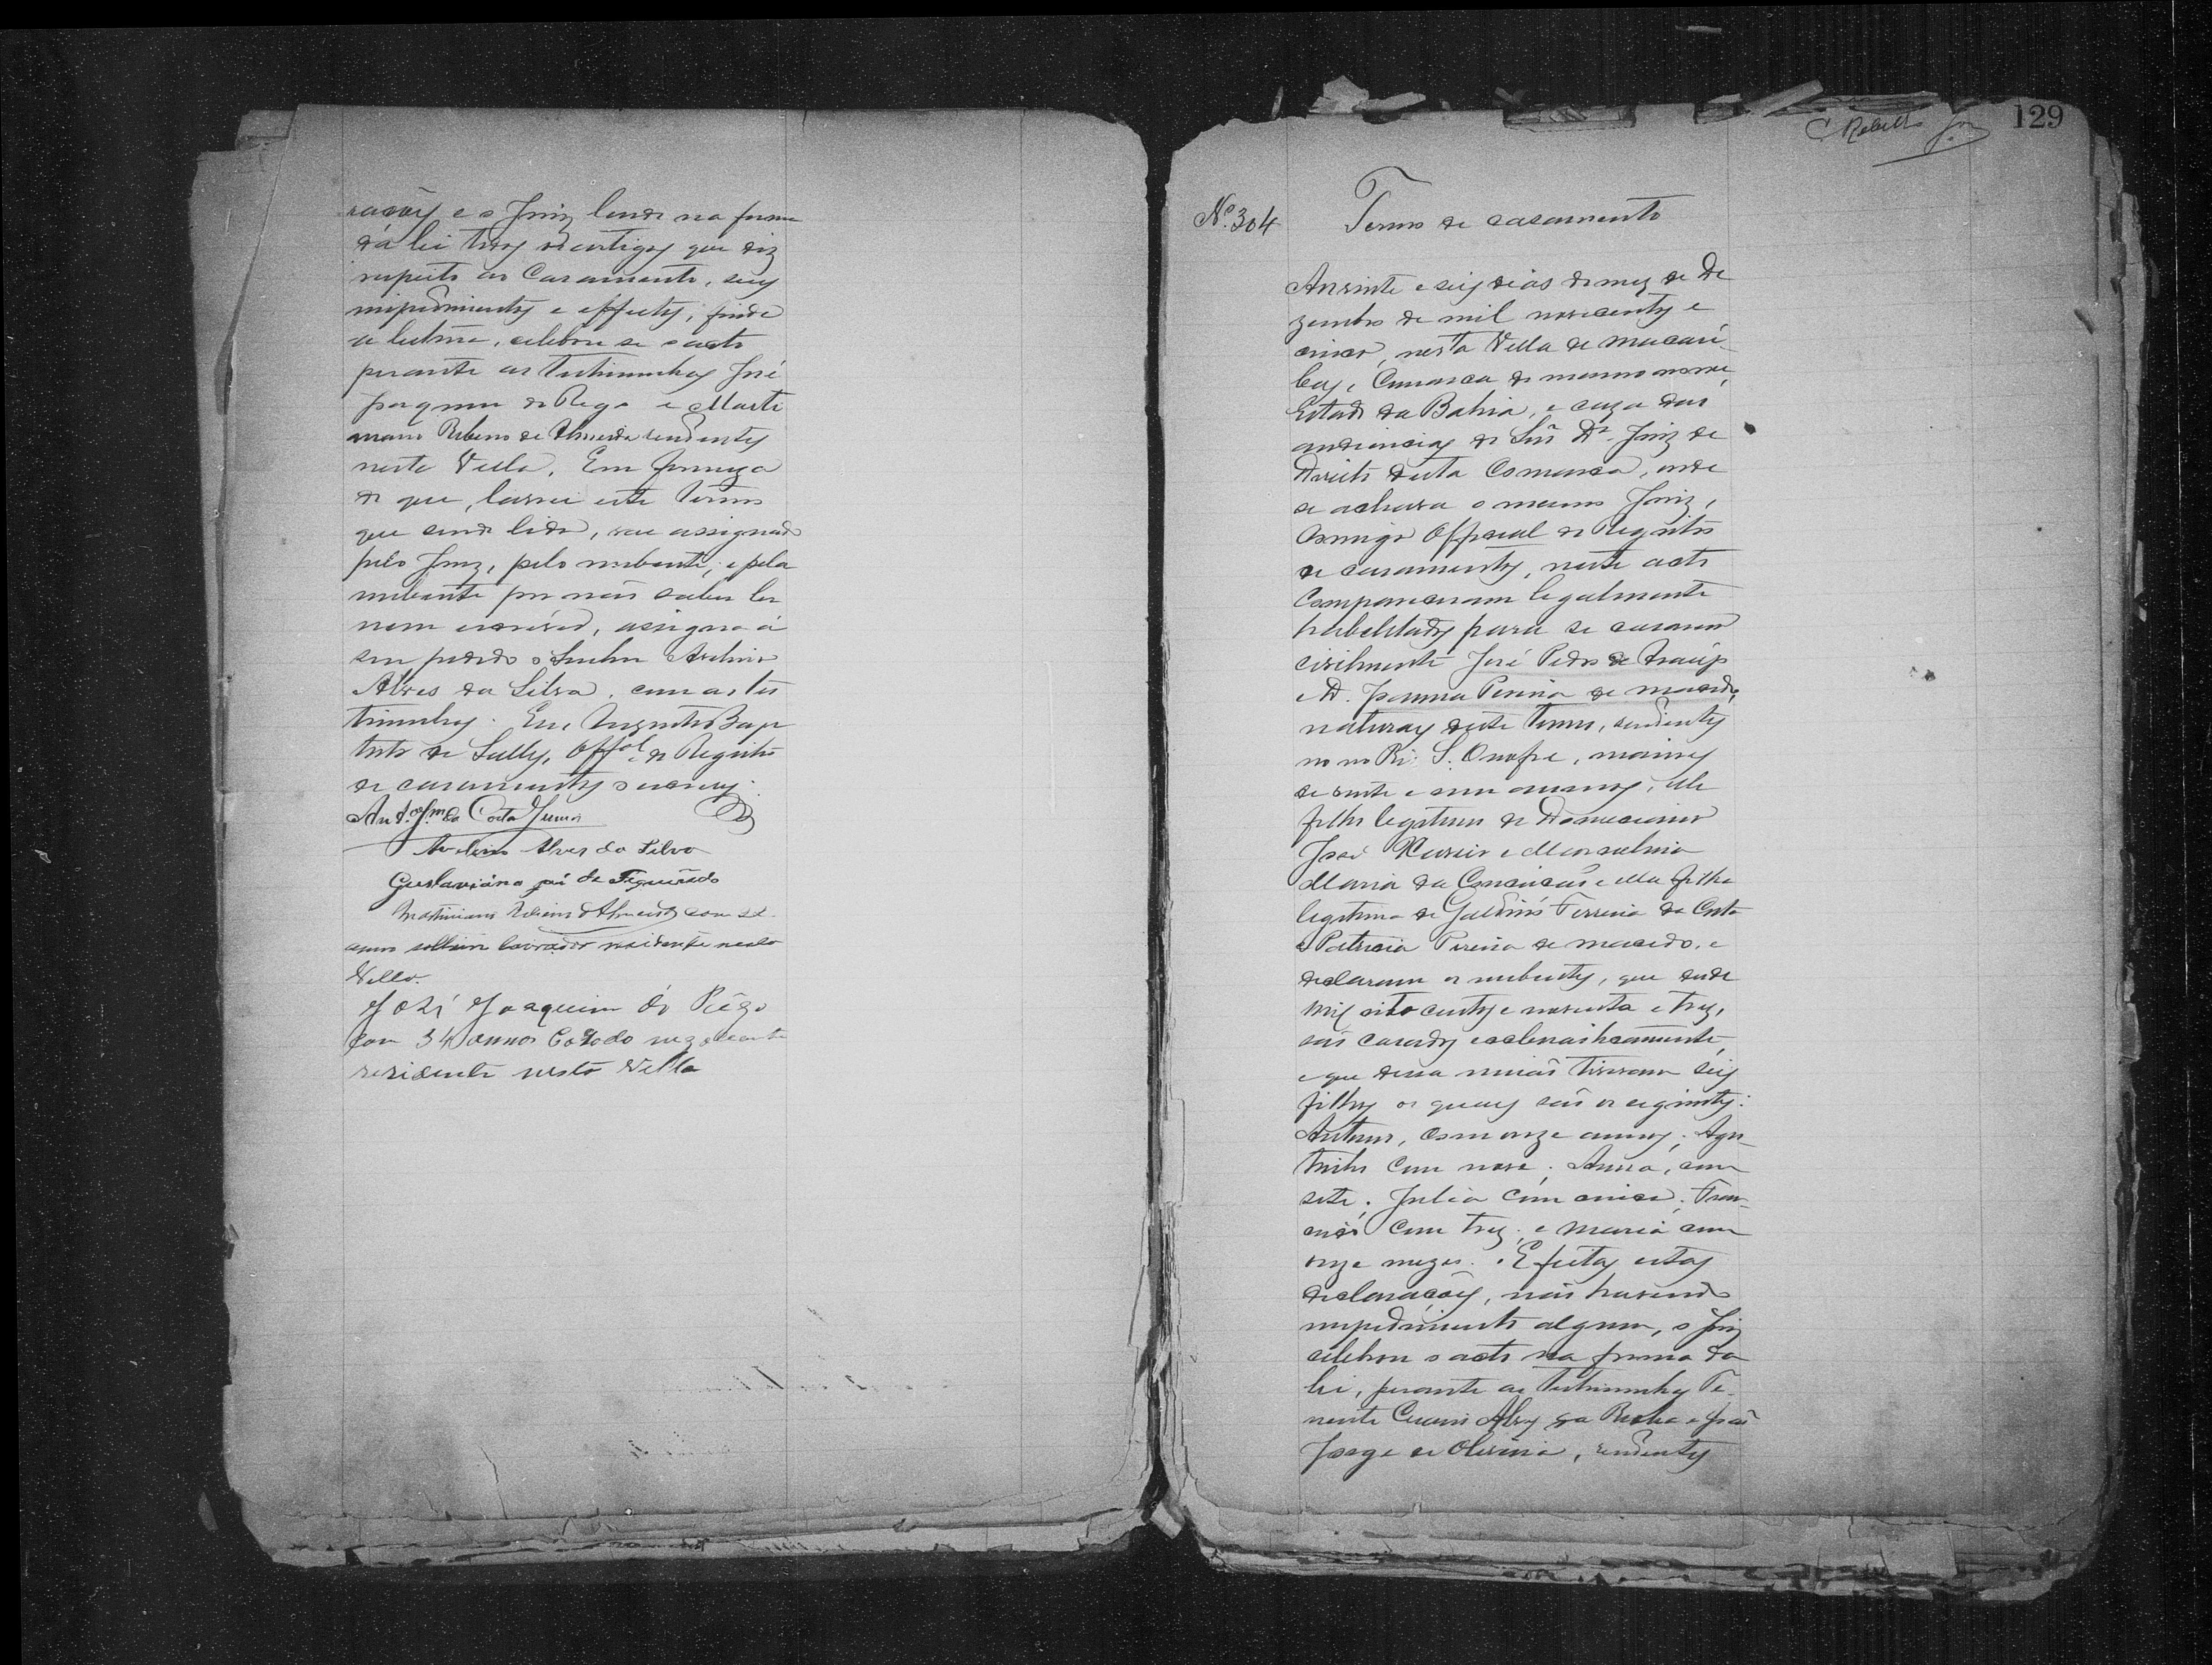 rações e o Juiz lendo na forma
da lei todos os artigos que diz
respeito ao Casamento, seus
impedimentos e effeitos, finda
a leitura, celebrou se o acto
perante as testimunhas José
Joaquim do Rego e Marti
niano Ribeiro de Almeida residentes
nesta Villa. Em firmeza
do que, lavrei este termo
que sendo lido, vae assignado
pelo Juiz, pelo nubente, e pela
nubente por não saber ler
nem escrever, assigna á
seu pedido o Senhor Avelino
Alves da Silva, com as tes
timunhas. Eu, Augusto Bap
tista de Selles, Offal do Registro
de casamentos o escrevy.
Anto Jm da Costa Junior
Avelino Alves da Silva
Gustaviano José de Figueirêdo
Martiniano Ribeiro d'Almeida com
annos solteiro lavrador residente nesta
Villa.
José Joaquim do Rêgo
com 34 annos Casado negociante
residente nesta Villa
129
C Rebello Jor
No. 304
Termo de casamento
Aos vinte e seis dias do mez de De
zembro de mil novecentos e
cinco, nesta Villa de Macaú
bas, Comarca do mesmo nome,
Estado da Bahia, e caza das
audiencias do Snr Dr. Juiz de
Direito desta Comarca, onde
se achava o mesmo Juiz,
comigo Official do Registro
de casamentos, neste acto
Compareceram legalmente
habelitados para se casarem
civilmente José Pedro de Araújo
e D. Joanna Pereira de Macedo,
naturaes deste termo, residentes
no Ri. S. Onofre, maiores
de vinte e um annos, elle
filho legitimo de
José Xavier e Marcelina
Maria da Conceição e ella filha
legitima de Galdino Ferreira da Costa
e Patricia Pereira de Macedo, e
declararam os nubentes, que desde
mil oito centos e noventa e trez,
são casados ecclesiasticamente,
e que dessa união tiveram seis
filhos os quaes são os seguintes:
Antonio, com onze annos; Agos
tinho com nove; Anna, com
sete; Julia com cinco; Fran
cisco com trez; e Maria com
onze mezes. E feitas estas
declarações, não havendo
impedimento algum, o Juiz
celebrou o acto na forma da
lei, perante as testimunhas Te
nente Alves da Rocha e José
Jorge de Oliveira, residentes